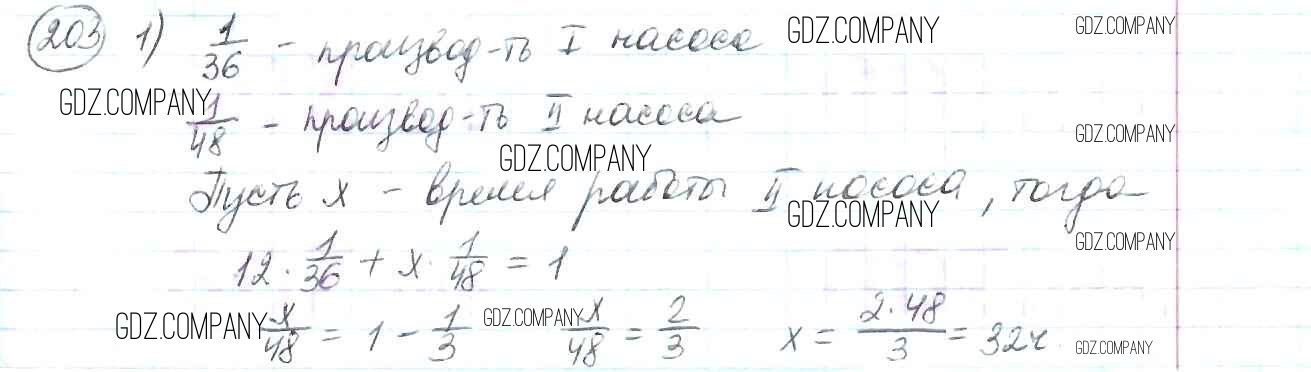 203 1) 1/36 - производ-ть I насоса GDZ.COMPANY GDZ.COMPANY
GDZ.COMPANY 1/48 - производ-ть II насоса GDZ.COMPANY
GDZ.COMPANY
Пусть x - время работы II насоса, тогда
GDZ.COMPANY GDZ.COMPANY
12 · 1/36 + x · 1/48 = 1
GDZ.COMPANY x/48 = 1 - 1/3 GDZ.COMPANY x/48 = 2/3 x = 2·48/3 = 32ч. GDZ.COMPANY